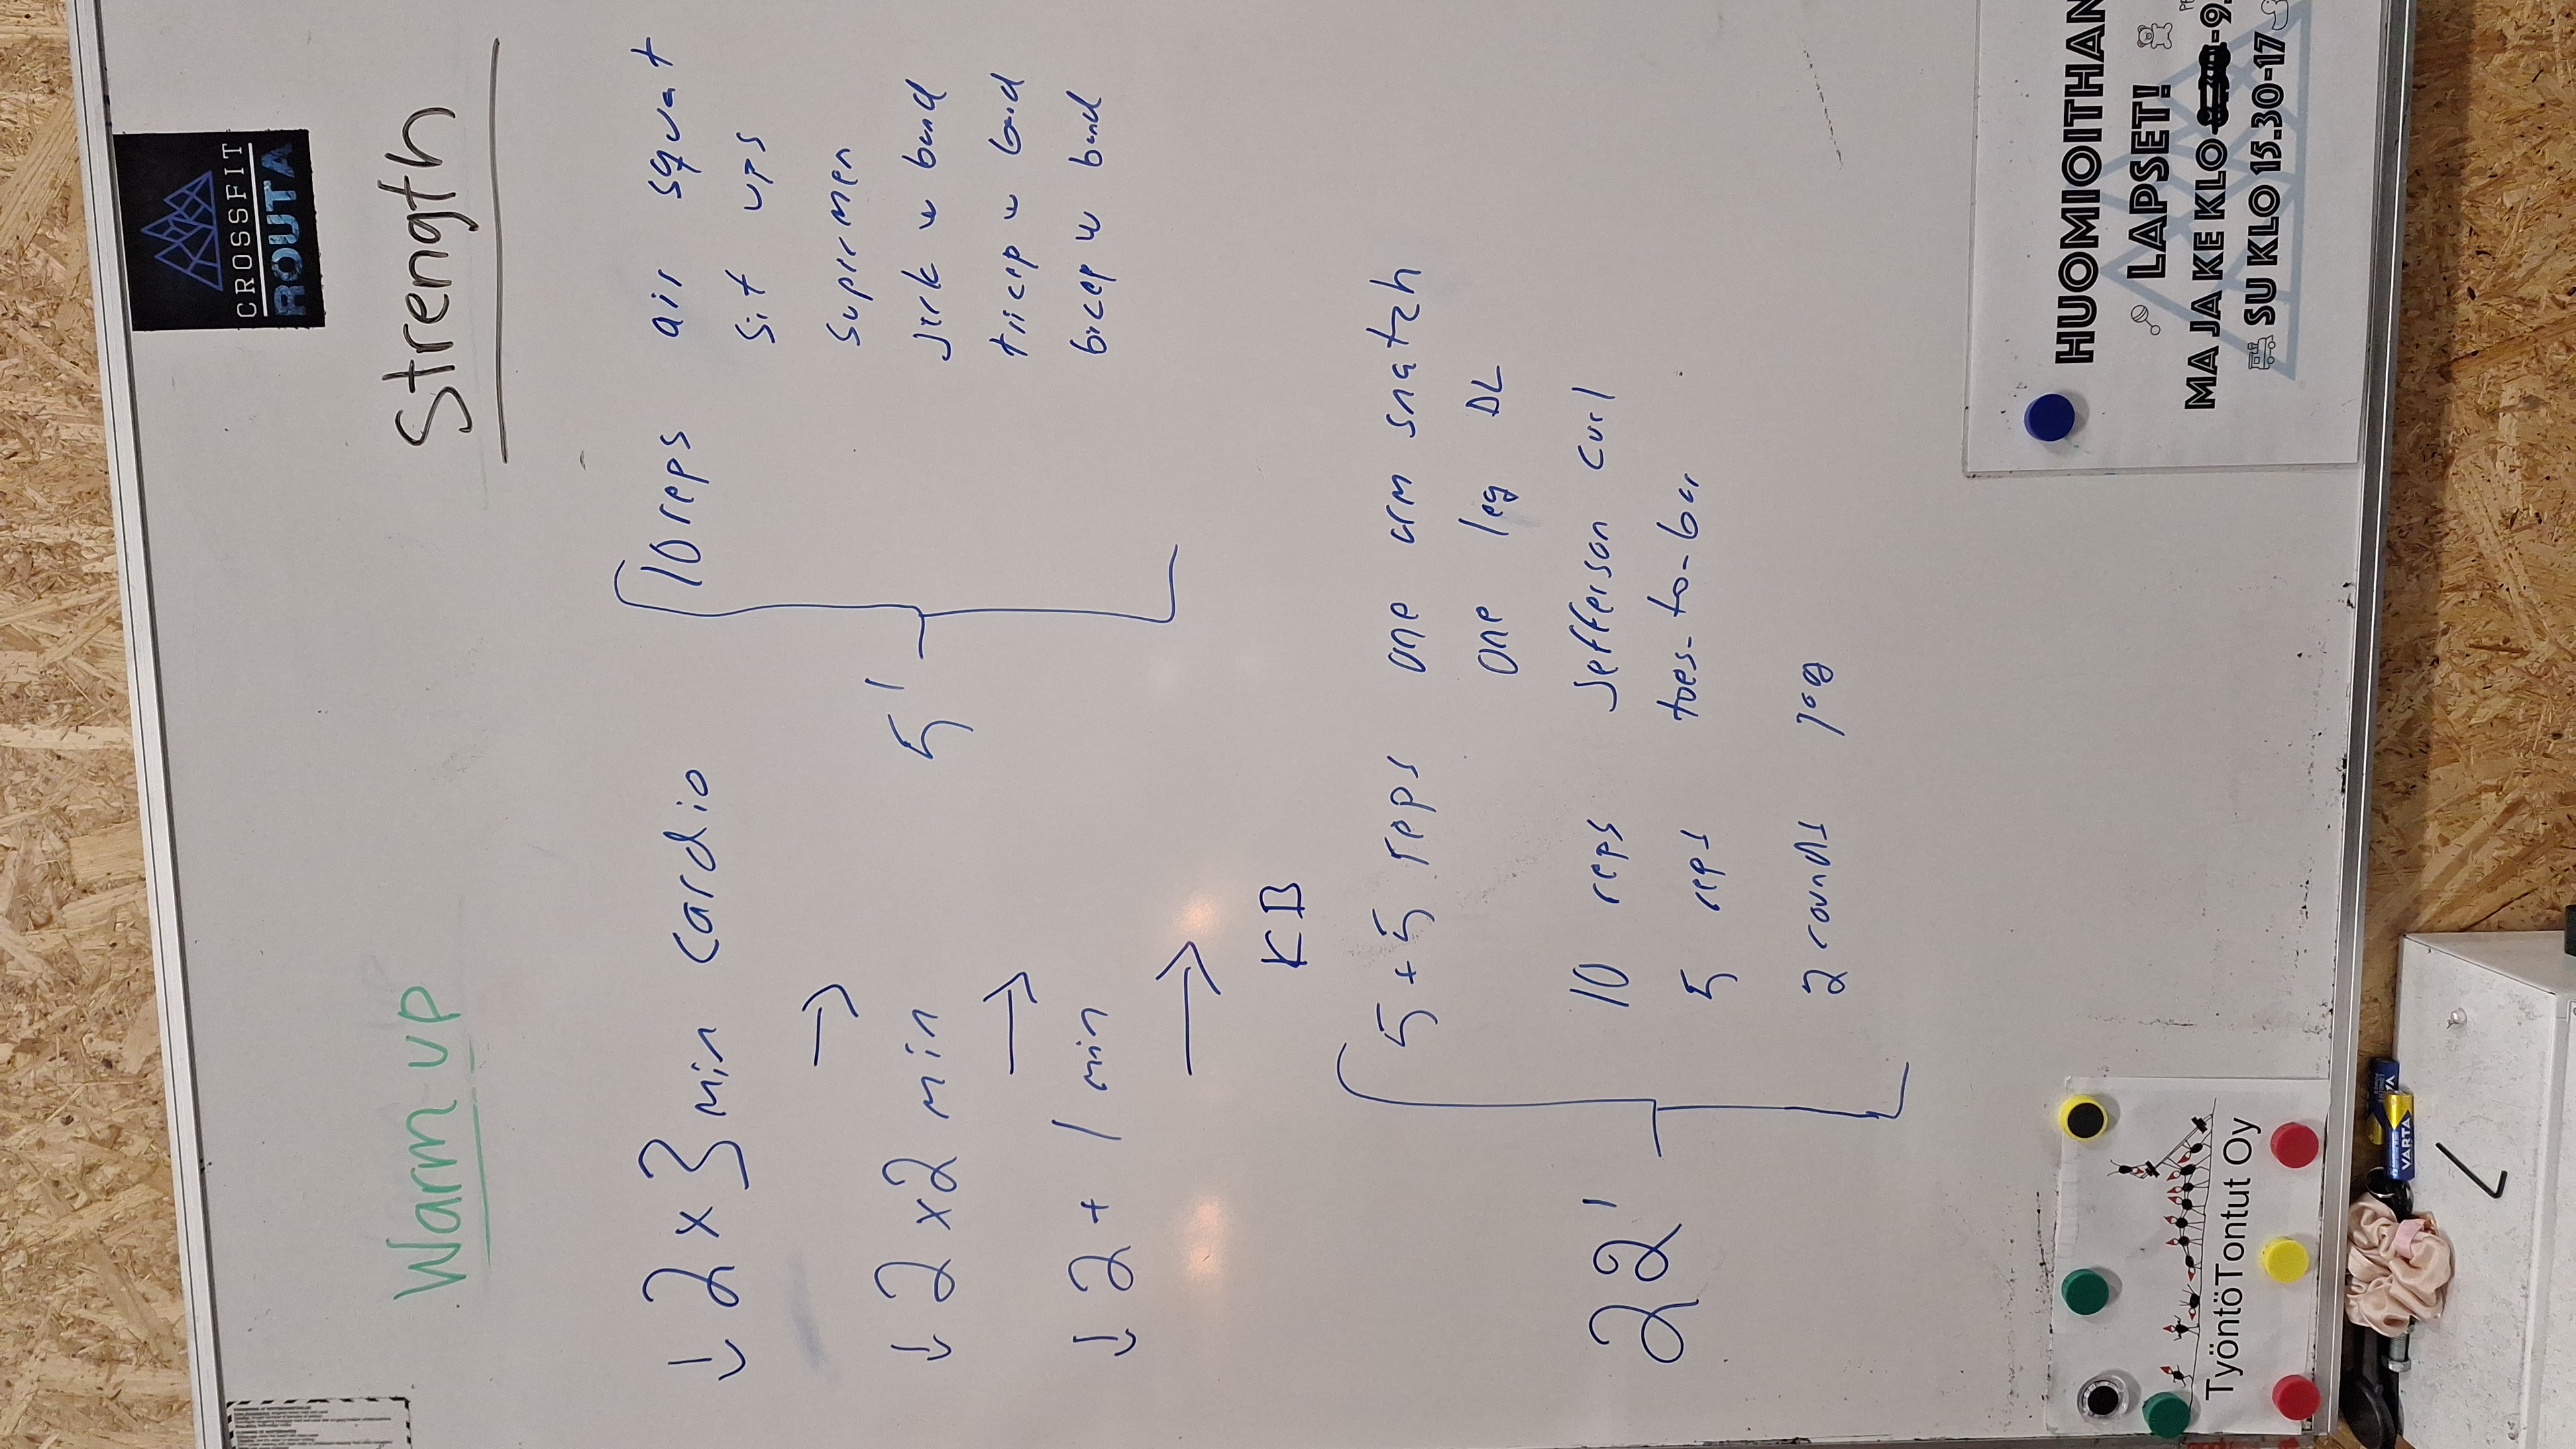 CROSSFIT
ROUTA
Warm up
Strength
↓ 2 x 3 min cardio
→
↓ 2 x 2 min
→
↓ 2 + 1 min
→
5'
10 reps air squat
sit ups
supermen
jerk w band
tricep w band
bicep w band
KB
22'
5 + 5 reps one arm snatzh
one leg DL
10 reps Jefferson curl
5 reps toes-to-bar
2 rounds jog
TyöntöTontut Oy
HUOMIOITHAN
LAPSET!
MA JA KE KLO
SU KLO 15.30-17
VARTA